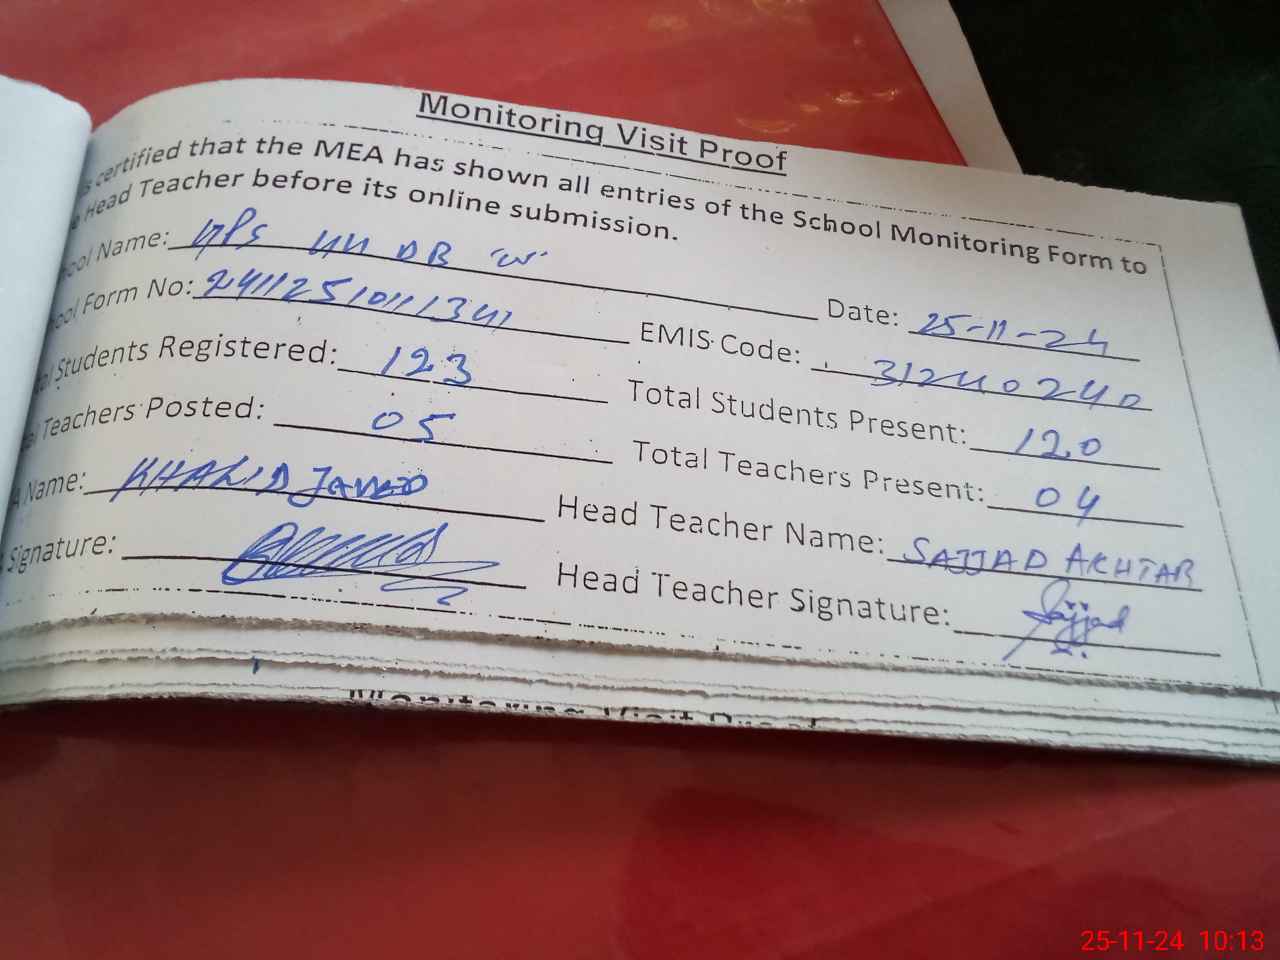 Monitoring Visit Proof
certified that the MEA has shown all entries of the School Monitoring Form to
Head Teacher before its online submission.
ool Name: GPS 44 DB "W" Date: 25-11-24
ool Form No: 24112510111341 EMIS Code: 31240240
al Students Registered: 123 Total Students Present: 120
al Teachers Posted: 05 Total Teachers Present: 04
A Name: KHALID JAVED Head Teacher Name: SAJJAD AKHTAR
Signature: Head Teacher Signature: Sajjad
Monitoring Visit Proof
25-11-24 10:13